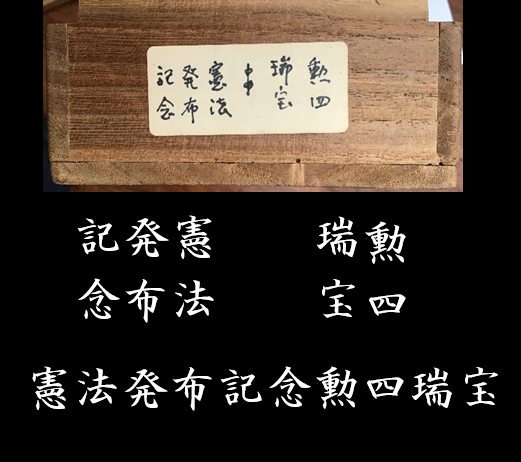 勲四
瑞宝
憲法
発布
記念
勲四
瑞宝
憲法
発布
記念
憲法発布記念勲四瑞宝